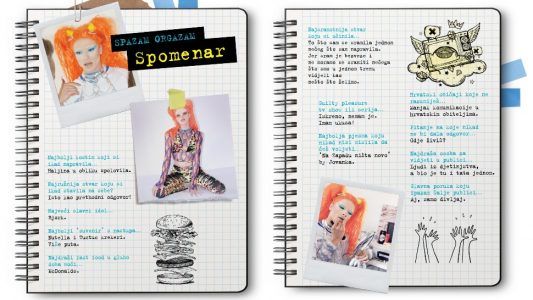 SPAZAM ORGAZAM
Spomenar
Najbolji kostim koji si
ikad napravila.
Haljina u obliku spolovila.
Najružnija stvar koju si
ikad stavila na sebe?
Isto kao prethodni odgovor!
Najveći slavni idol...
Bjork.
Najbolji 'suvenir' s nastupa...
Nutella i Tuctuc krekeri.
Više puta.
Najdraži fast food u gluho
doba noći...
McDonalds.
Najsramotnija stvar
koju si učinila...
To što sam se sramila jednom
nečeg što sam napravila.
Jer sram je bezveze i
ne moramo se sramiti nečega
što smo u jednom trenu
vidjeli kao
nešto što želimo.
Guilty pleasure
tv show ili serija...
Iskreno, nemam je.
Imam ukusa!
Najbolja pjesma koju
nikad nisi mislila da
ćeš voljeti.
'Na Zapadu ništa novo'
by Jovanka.
Hrvatski običaji koje ne
razumiješ...
Manjak komunikacije u
hrvatskim obiteljima.
Pitanje na koje nikad
ne bi dala odgovor...
Gdje živiš?
Najdraža osoba za
vidjeti u publici...
Ljudi iz djetinjstva,
a bio je tu i tata jednom.
Glavna poruka koju
Spazam šalje publici...
Aj, samo divljaj.